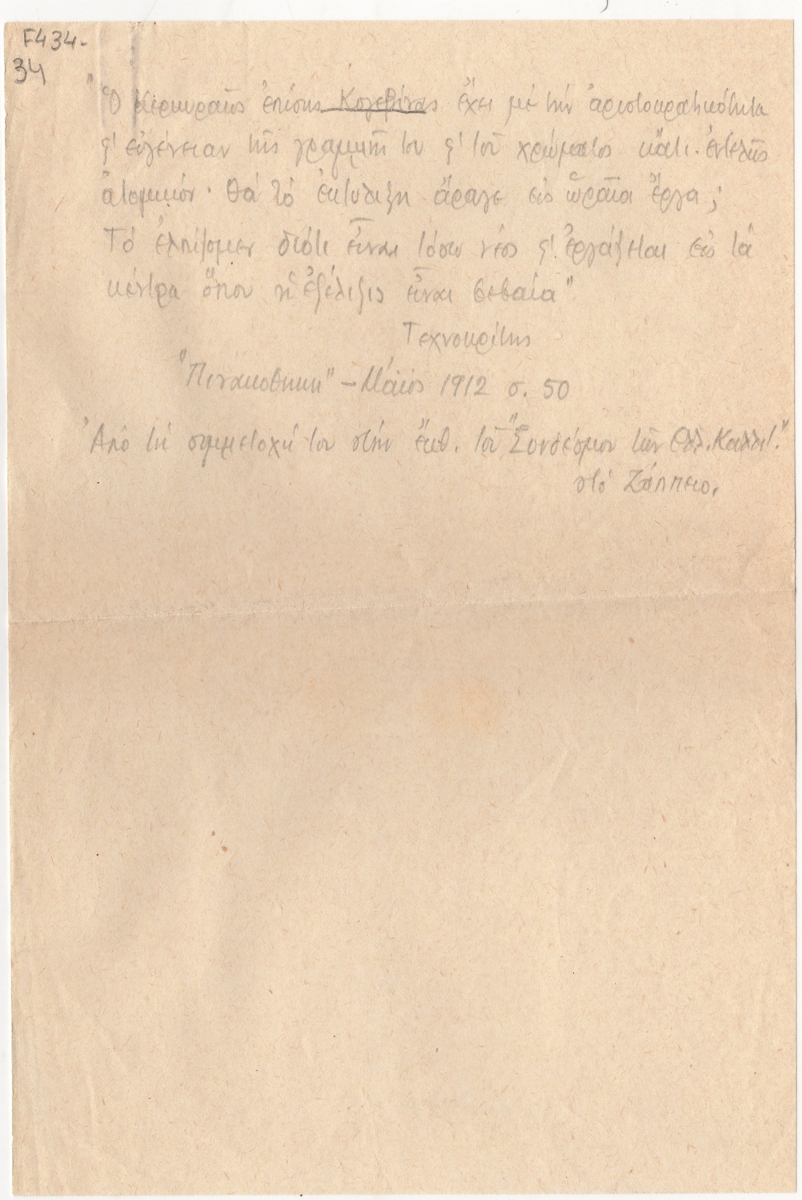 F434-
34
"Ὁ Κερκυραῖος ἐπίσης Κογεβίνας ἔχει μὲ τὴν ἀριστοκρατικότητα
κ' εὐγένειαν τῆς γραμμῆς του κ' τοῦ χρώματος κάτι ἐντελῶς
ἀτομικόν. Θὰ τὸ ἐκτυλίξῃ ἄραγε εἰς ὡραῖα ἔργα;
Τὸ ἐλπίζομεν διότι εἶναι τόσον νέος κ' ἐργάζεται εἰς τὰ
κέντρα ὅπου ἡ ἐξέλιξις εἶναι βεβαία"
Τεχνοκρίτης
"Πινακοθήκη" – Μάϊος 1912 σ. 50
Ἀπὸ τὴ συμμετοχή του στὴν ἔκθ. τοῦ "Συνδέσμου τῶν Ἑλλ. Καλλιτ."
στὸ Ζάππειο.